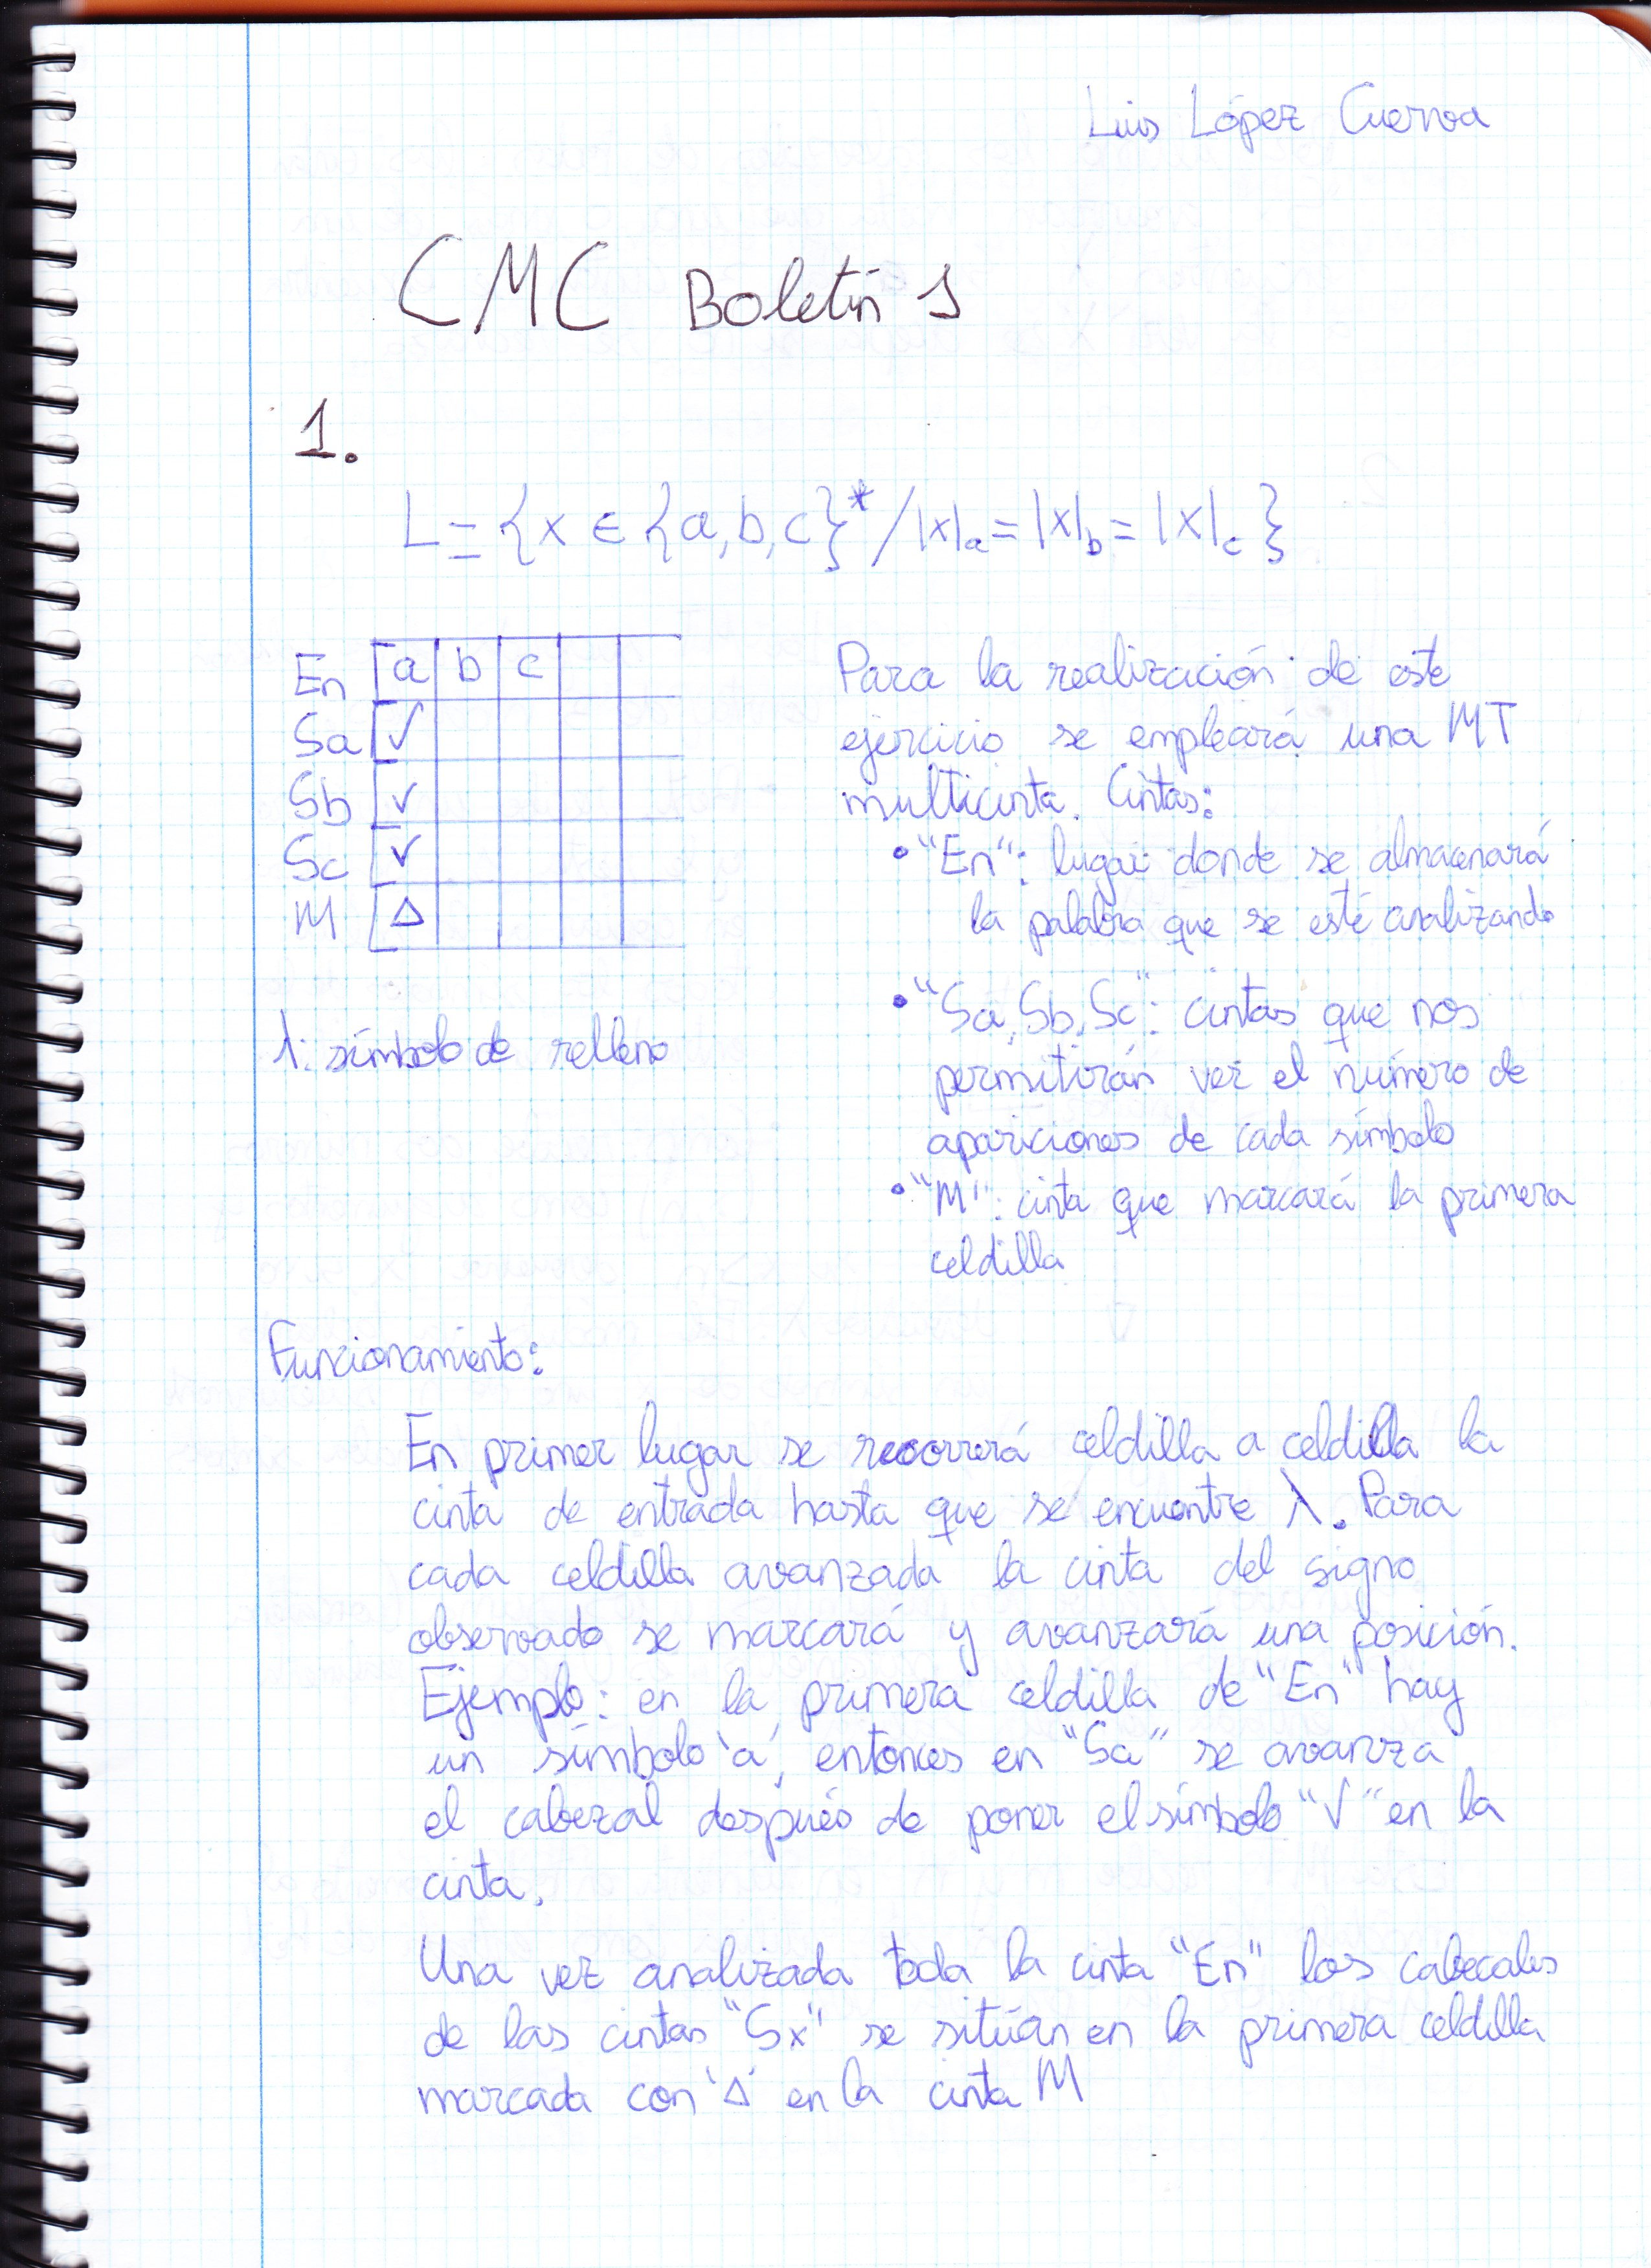 Luis López Cuerva
CMC Boletín 1
1.
L = {x ∈ {a,b,c}* / |x|a = |x|b = |x|c}
En a b c
Sa √
Sb √
Sc √
M Δ
λ: símbolo de relleno
Para la realización de este
ejercicio se empleará una MT
multicinta. Cintas:
• "En": lugar donde se almacenará
la palabra que se esté analizando
• "Sa, Sb, Sc": cintas que nos
permitirán ver el número de
apariciones de cada símbolo
• "M": cinta que marcará la primera
celdilla
Funcionamiento:
En primer lugar se recorrerá celdilla a celdilla la
cinta de entrada hasta que se encuentre λ. Para
cada celdilla avanzada la cinta del signo
observado se marcará y avanzará una posición.
Ejemplo: en la primera celdilla de "En" hay
un símbolo 'a', entonces en "Sa" se avanza
el cabezal después de poner el símbolo "√" en la
cinta.
Una vez analizada toda la cinta "En" los cabecales
de las cintas "Sx" se sitúan en la primera celdilla
marcada con 'Δ' en la cinta M